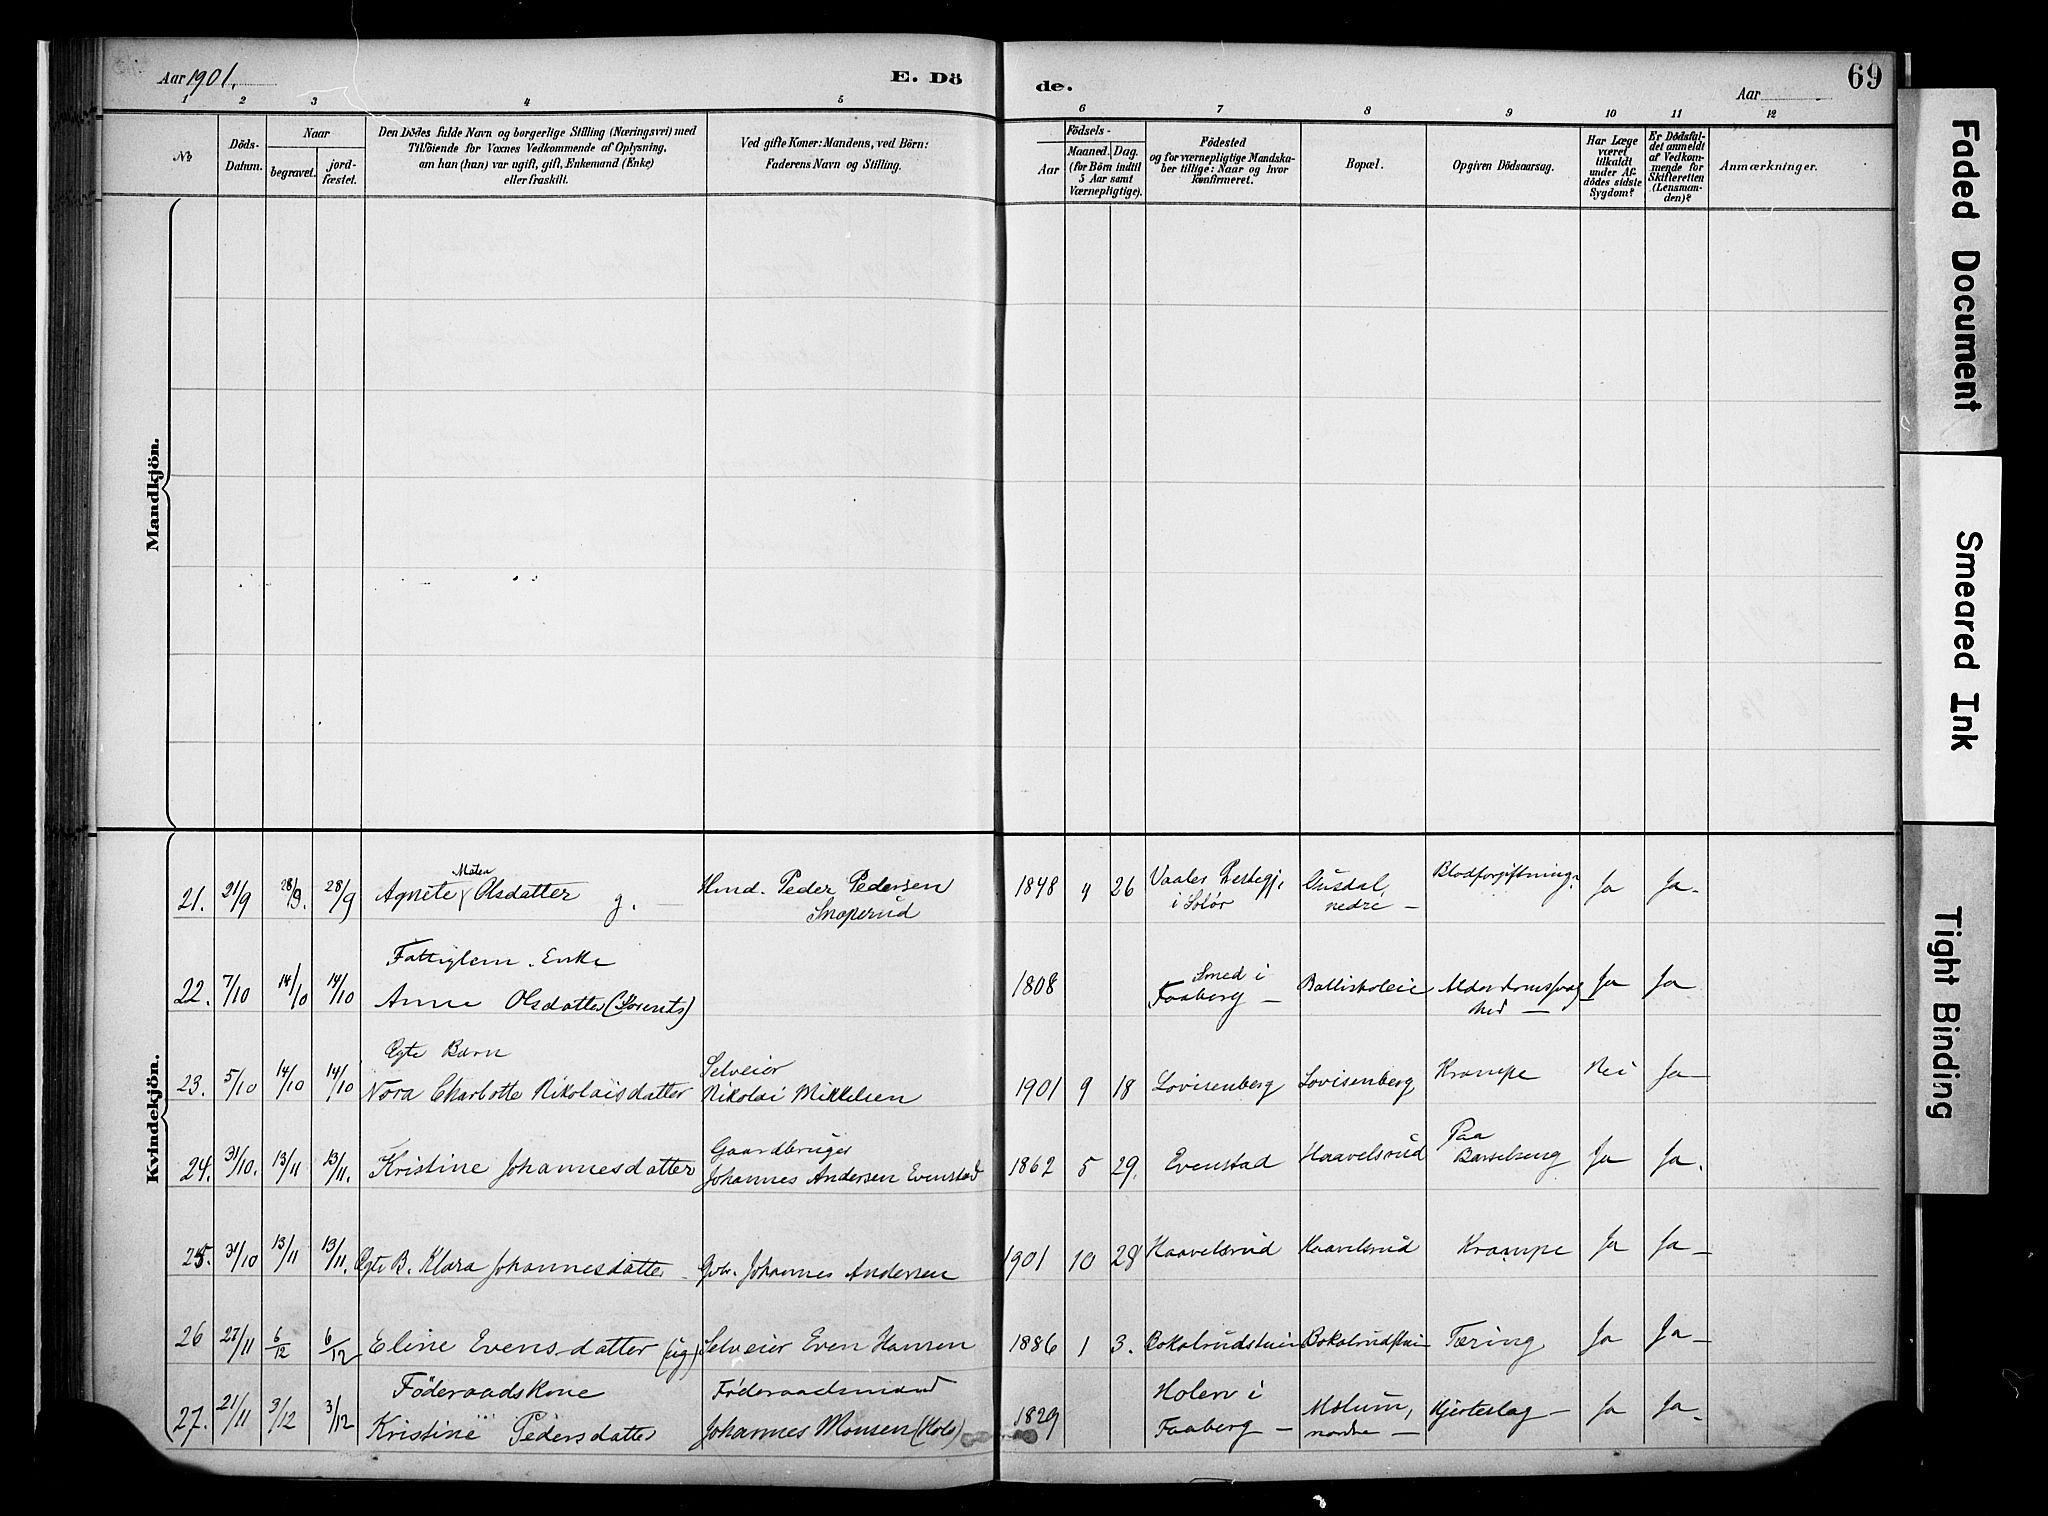 Aar 1901.
E. Dö
de.
Aar
69
1 2 3 4 5 6 7 8 9 10 11 12
No
Döds-
Datum.
Naar
begravet.
jord-
fæstet.
Den Dödes fulde Navn og borgerlige Stilling (Næringsvei) med
Tilföiende for Voxnes Vedkommende af Oplysning,
om han (hun) var ugift, gift, Enkemand (Enke)
eller fraskilt.
Ved gifte Koner: Mandens, ved Börn:
Faderens Navn og Stilling.
Födsels-
Aar
Maaned. Dag.
(for Börn indtil
5 Aar samt
Værnepligtige).
Födested
og for værnepligtige Mandska-
ber tillige: Naar og hvor
konfirmeret.
Bopæl.
Opgiven Dödsaarsag.
Har Læge
været
tilkaldt
under Af-
dödes sidste
Sygdom?
Er Dödsfal-
det anmeldt
af Vedkom-
mende for
Skifteretten
(Lensman-
den)?
Anmærkninger.
Mandkjön.
Kvindekjön.
21. 21/9 28/9. 28/9 Agnete Olsdatter g. — Hmd. Peder Pedersen
Snoperud
1848 4 26 Vaaler Prestegj.
i Solør
nedre — Blodforgiftning Ja Ja-
22. 7/10 14/10 14/10 Fattiglem. Enke
Anne Olsdatter (Lorents)
1808 Smed i
Faaberg — Ballishøleie Alderdomssvag-
hed — Ja Ja
23. 5/10 14/10 14/10 Egte Barn
Nora Charlotte Nikolaisdatter
Selveier
Nikolai Mikkelsen
1901 9 18 Lovisenberg Lovisenberg Krampe Nei Ja —
24. 31/10. 13/11 13/11. Kristine Johannesdatter
Gaardbruger
Johannes Andersen Evenstad
1862 5 29. Evenstad Haavelsrud Paa
Barselseng Ja Ja.
25. 31/10 13/11 13/11. Egte B. Klara Johannesdatter Gbr. Johannes Andersen
1901 10 28 Haavelsrud Haavelsrud Krampe Ja Ja —
26 27/11 6/12 6/12 Eline Evensdatter (ug) Selveier Even Hansen
1886 1 3. Tæring Ja Ja —
27. 21/11 3/12 3/12 Föderaadskone
Kristine Pedersdatter
Föderaadsmand
Johannes Monsen (Hole)
1829 Holen i
Faaberg — Mælum,
nordre — Hjerteslag — Ja Ja-
Faded Document
Smeared Ink
Tight Binding